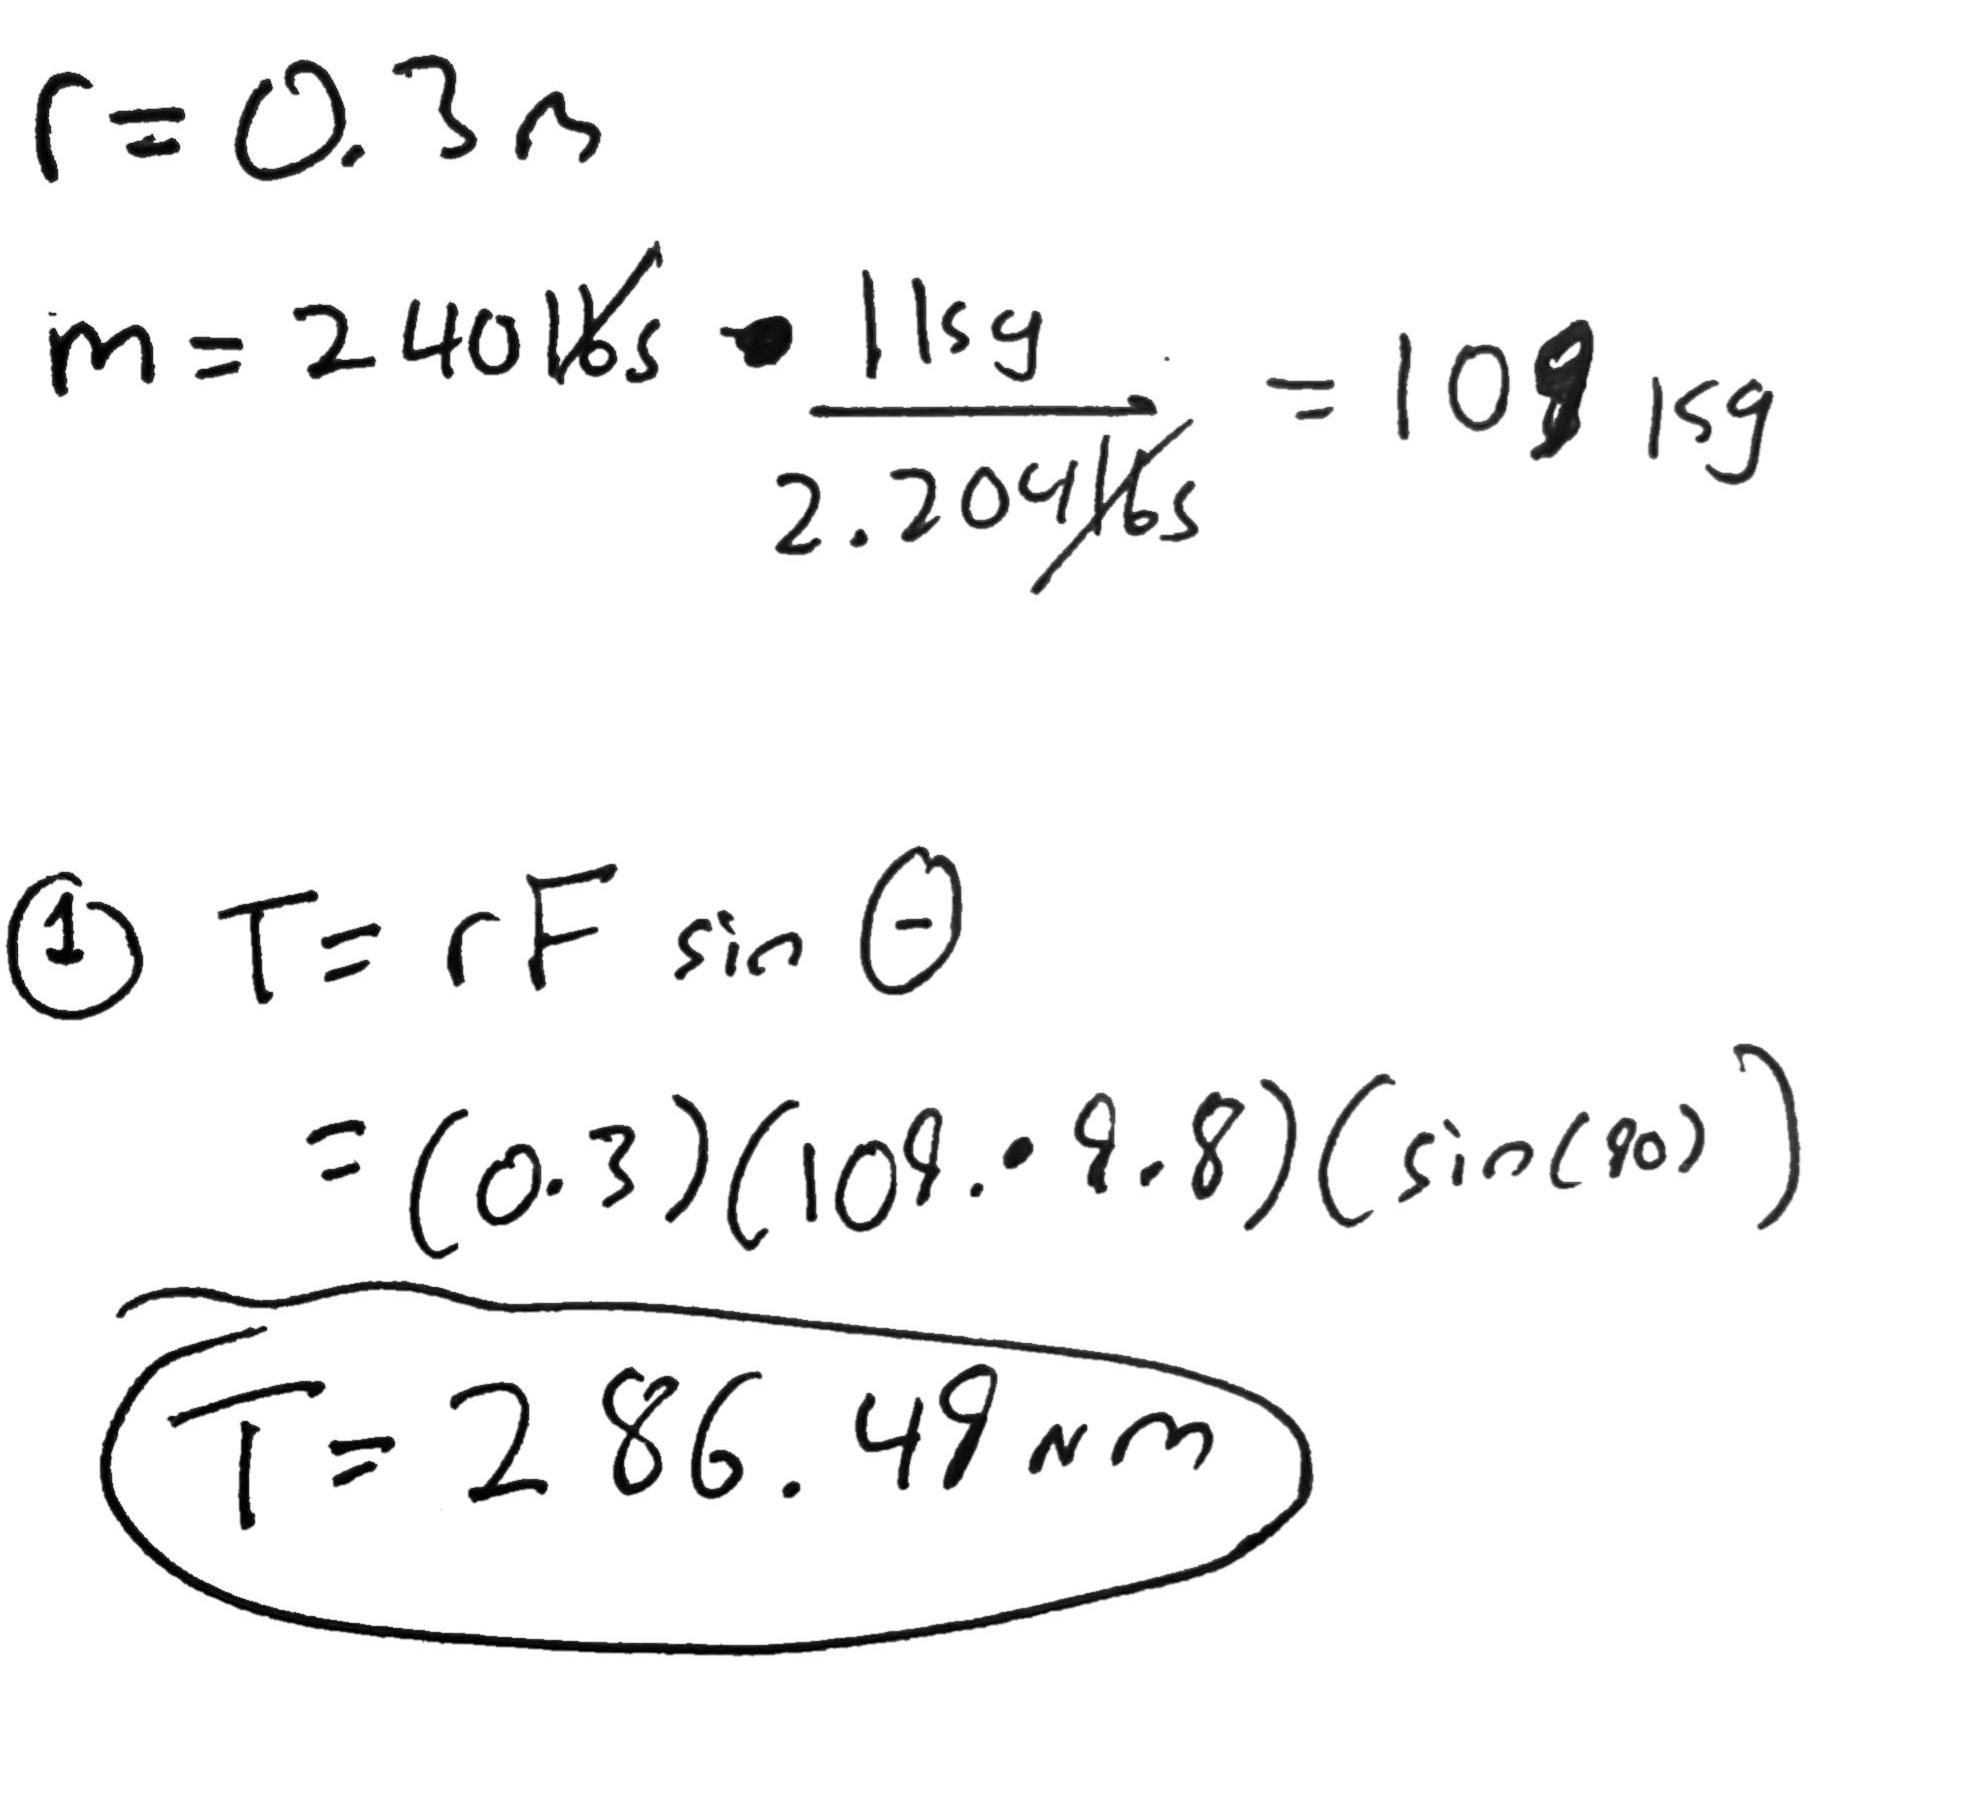 r = 0.3 m
m = 240 lbs • 1 kg / 2.204 lbs = 109 kg
① T = rF sin θ
= (0.3)(109. • 9.8)(sin(90))
T = 286.49 NM